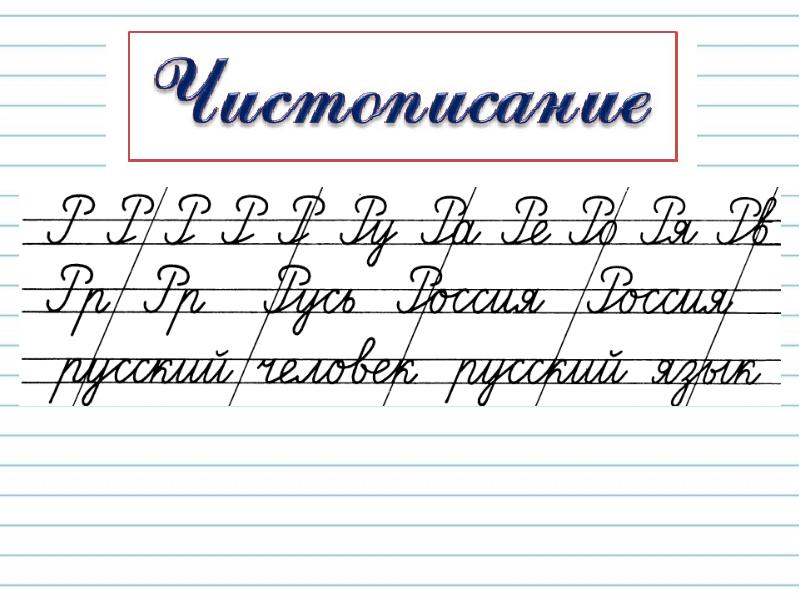 Чистописание
Р Р Р Р Р Ру Ра Ре Ро Ря Рв
Рр Рр Русь Россия Россия
русский человек русский язык